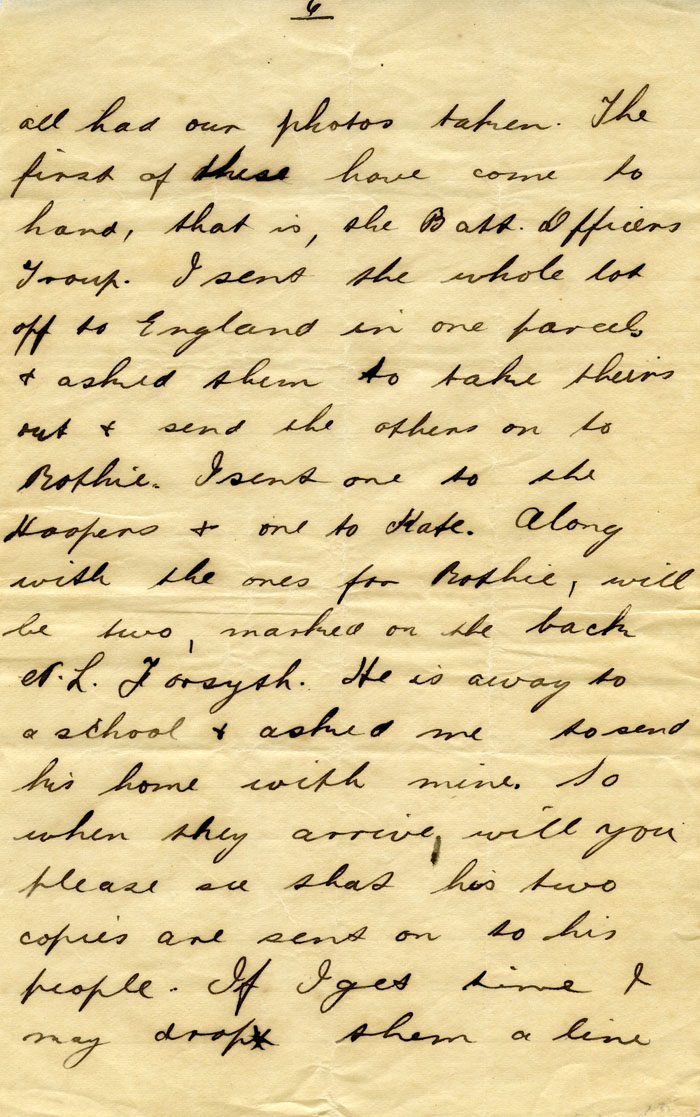 6
all had our photos taken. The
first of these have come to
hand, that is, the Batt. Officers
Group. I sent the whole lot
off to England in one parcel,
& asked them to take theirs
out & send the others on to
Rothie. I sent one to the
Hoopers & one to Kate. Along
with the ones for Rothie, will
be two, marked on the back
N. L. Forsyth. He is away to
a school & asked me to send
his home with mine. So
when they arrive, will you
please see that his two
copies are sent on to his
people. If I get time I
may drop them a line